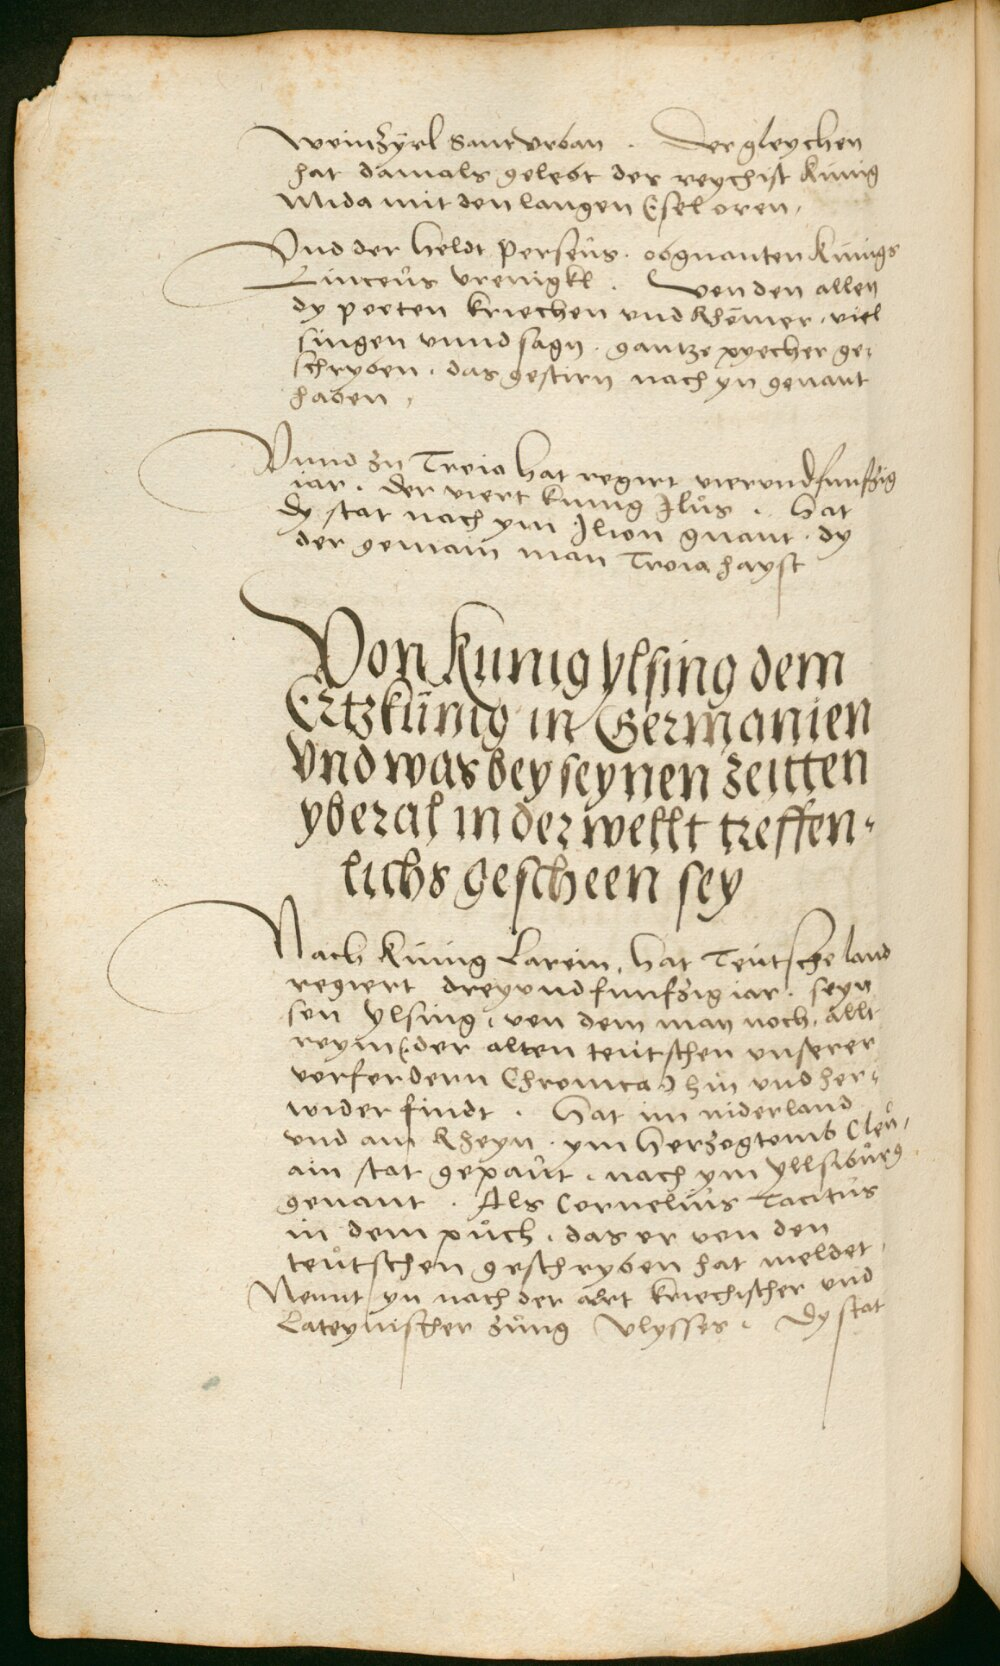 Weinzyrl Sant Urban . Der gleychen
hat damals gelebt der reychist Kunig
Mida mit den langen Esel oren,
Und der heldt Perseus . obgnanten Kunigs
Linceus vrenigkl . Von den allen
dy poeten kriechen vnd Rhömer . viel
singen vnnd sagn . gantze pyecher ge,
schryben . das gestirn nach yn genant
haben ,
Vnnd zu Troia hat regirt viervndfunfzig
iar . der viert kunig Jlus . hat
dy stat nach ym Jlion gnant . dy
der gemain man Troia hayst
Von Kunig ylsing dem
Ertzkünig in Germanien
vnd was bey seynen zeitten
yberal in der wellt treffen,
lichs gescheen sey
Nach Künig Larein, hat Teutsche land
regiert dreyvndfunfzig iar . seyn
sen Ylsing, von dem man noch, allt
reym (der alten teutschen vnserer
vorfordern Chronica) hin vnd her,
wider findt . hat im niderland
vnd am Rheyn . ym Herzogtomb Cleu,
ain stat gepaut . nach ym Yllsiburg
genant . Als Cornelius Tacitus
in dem puch . das er von den
teutschen geschryben hat meldet,
Nennt yn nach der art kriechischer vnd
Lateynischer zung Vlysses . Dy stat